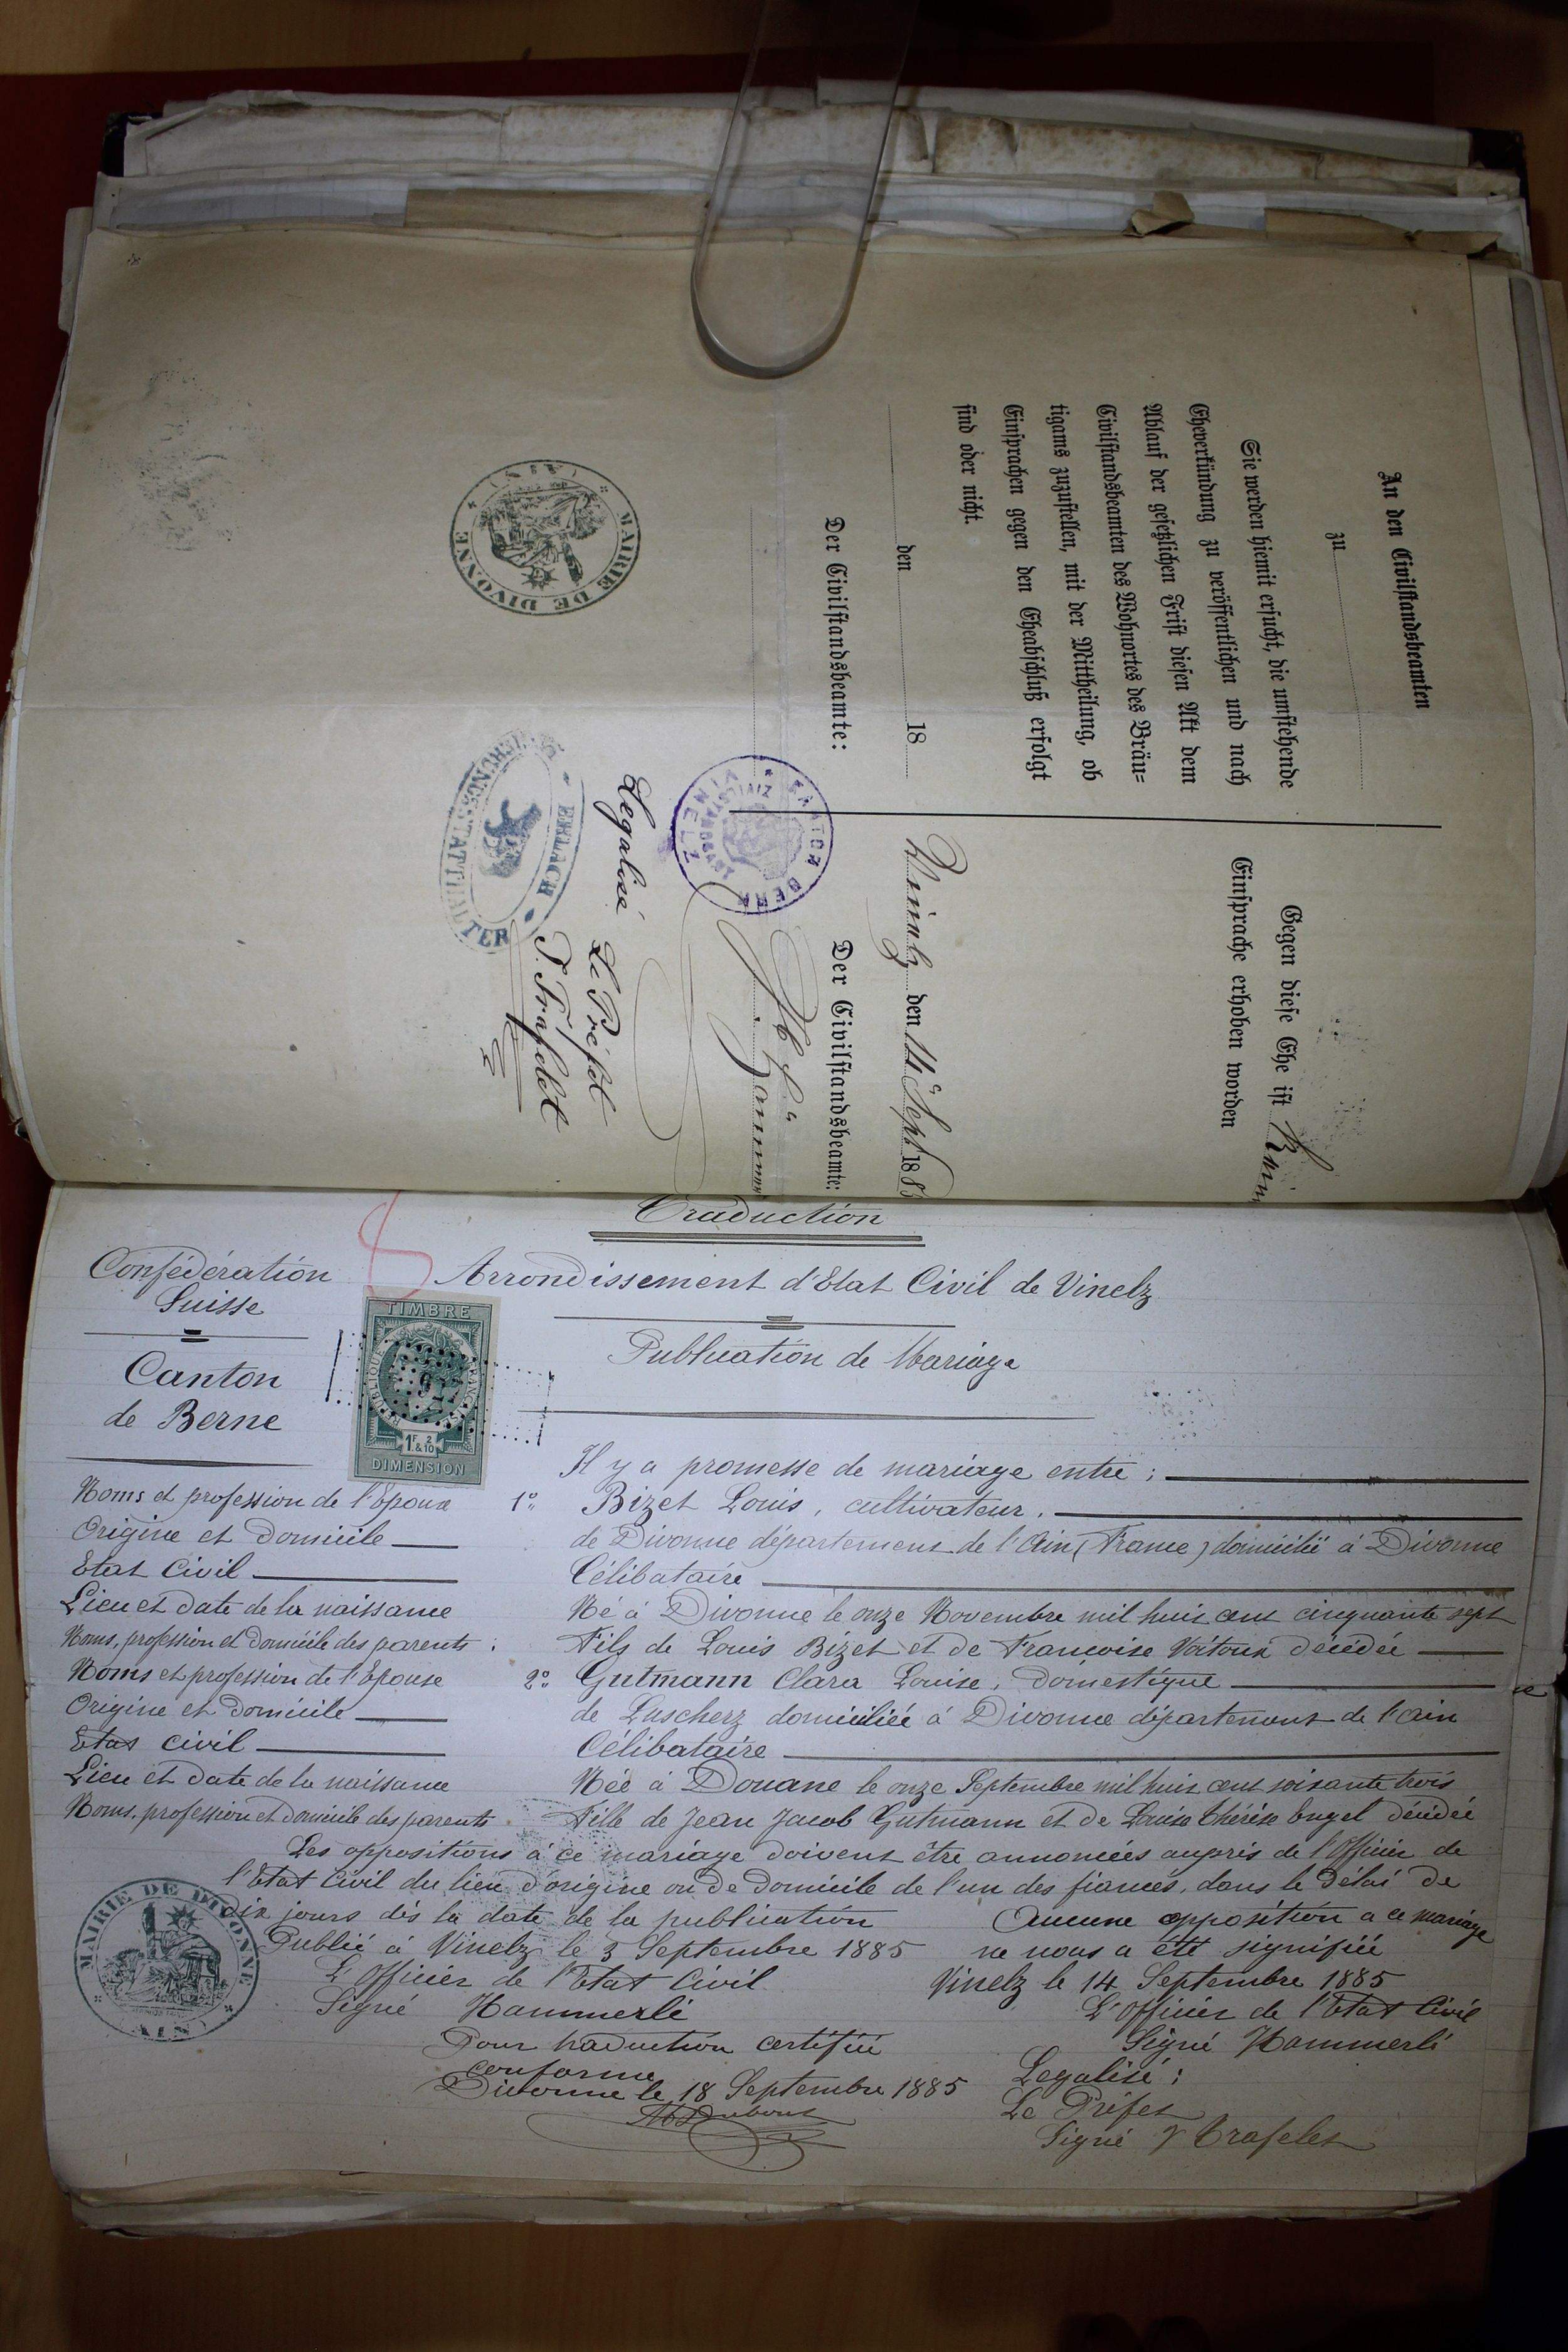 An den Civilstandsbeamten
zu
Sie werden hiemit ersucht, die umstehende
Eheverkündung zu veröffentlichen und nach
Ablauf der gesetzlichen Frist diesen Akt dem
Civilstandsbeamten des Wohnortes des Bräu=
tigams zuzustellen, mit der Mittheilung, ob
Einsprachen gegen den Eheabschluß erfolgt
sind oder nicht.
den 18
Der Civilstandsbeamte:
MAIRIE DE DIVONNE
(AIN)
Gegen diese Ehe ist
Einsprache erhoben worden
Vinelz den 14. Sept 188
Der Civilstandsbeamte:
KANTON BERN
VINELZ
Legalisé
Le Préfet
ERLACH
REGIERUNGSSTATTHALTER
Traduction
Confédération
Suisse
Canton
de Berne
Arrondissement d'Etat Civil de Vinelz
TIMBRE
REPUBLIQUE FRANCAISE
1F 2 & 10
DIMENSION
Publication de Mariage
Il y a promesse de mariage entre :
Noms et profession de l'Epoux 1° Bizet Louis, cultivateur.
Origine et Domicile de Divonne département de l'Ain (France) domicilié à Divonne
Etat Civil Célibataire
Lieu et date de la naissance Né à Divonne le onze Novembre mil huit cent cinquante sept
Noms, profession et domicile des parents. Fils de Louis Bizet et de Francoise Voitoux décédée
Noms et profession de l'Epouse 2° Gutmann Clara Louise, Domestique
Origine et Domicile de Luscherz domiciliée à Divonne département de l'Ain
Etat Civil Célibataire
Lieu et date de la naissance Née à Douane le onze Septembre mil huit cent soixante trois
Noms, profession et domicile des parents Fille de Jean Jacob Gutmann et de Louise Thérèse Engel décédée
Les oppositions à ce mariage doivent être annoncées auprès de l'Officier de
l'Etat Civil du lieu d'origine ou de Domicile de l'un des fiancés, dans le délai de
dix jours dès la date de la publication
Publié à Vinelz le 3 Septembre 1885
L'Officier de l'Etat Civil
Signé Hammerli
Aucune opposition a ce mariage
ne nous a été signifiée
Vinelz le 14 Septembre 1885
L'Officier de l'Etat Civil
Signé Hammerli
Pour traduction certifiée
conforme
Divonne le 18 Septembre 1885
Legalisé :
Le Préfet
Signé Trafelet
MAIRIE DE DIVONNE
(AIN)